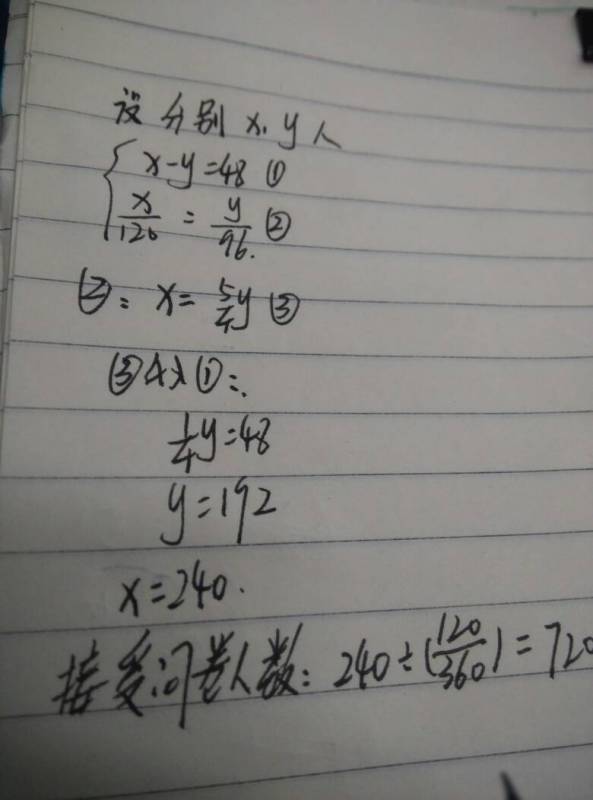 设分别x、y人
x-y=48 ①
x/120 = y/96. ②
②: x= 5/4 y ③
③代入①:
1/4 y=48
y=192
x=240.
接受问卷人数: 240÷(120/360)=720